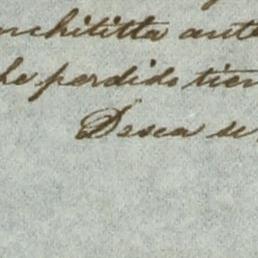 nchititta ante
he perdido tien
Desea se